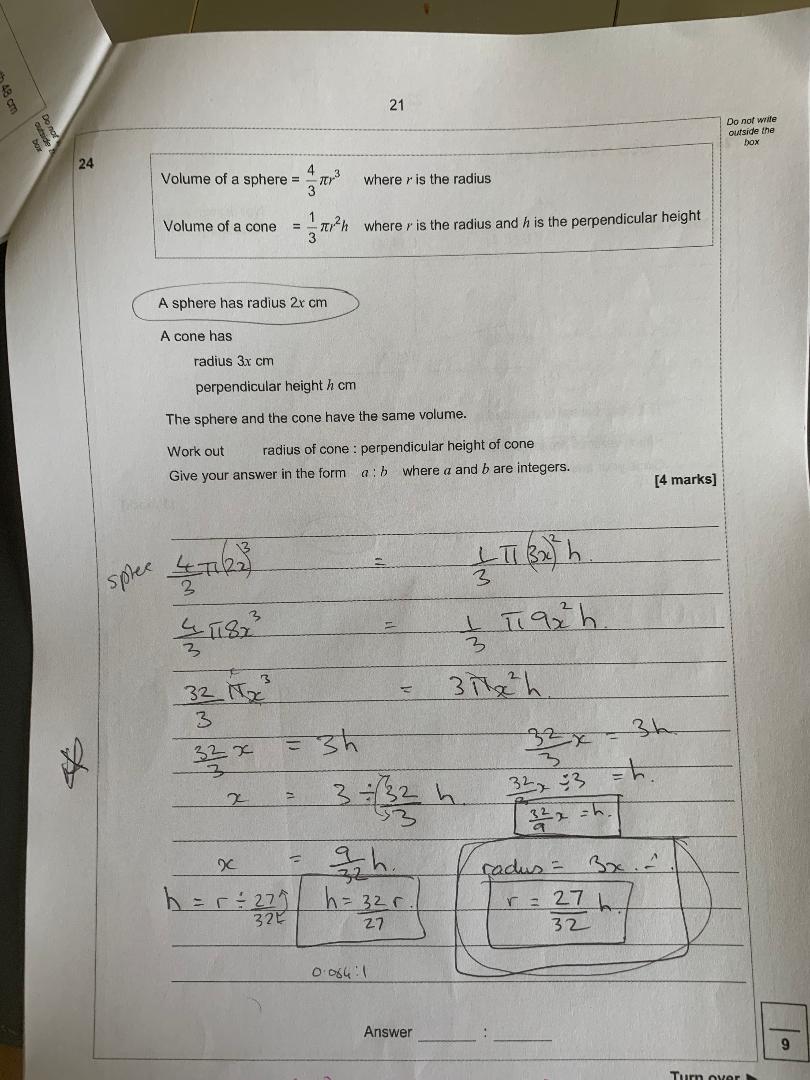 21
Do not write
outside the
box
48 cm
Do not
outside
box
24
Volume of a sphere = 4/3 πr³ where r is the radius
Volume of a cone = 1/3 πr²h where r is the radius and h is the perpendicular height
A sphere has radius 2x cm
A cone has
radius 3x cm
perpendicular height h cm
The sphere and the cone have the same volume.
Work out radius of cone : perpendicular height of cone
Give your answer in the form a : b where a and b are integers.
[4 marks]
4/3 π(2x)³ = 1/3 π(3x)²h.
4/3 π8x³ = 1/3 π9x²h.
32/3 πx³ = 3πx²h.
32/3 x = 3h
32/3 x = 3h
x = 3 ÷ (32/3) h
32x ÷3 = h.
32/9 x = h.
x = 9/32 h.
radus = 3x. ∴
h = r ÷ 27/32
h = 32/27 r.
r = 27/32 h.
0.084:1
Answer ______ : ______
9
Turn over ►